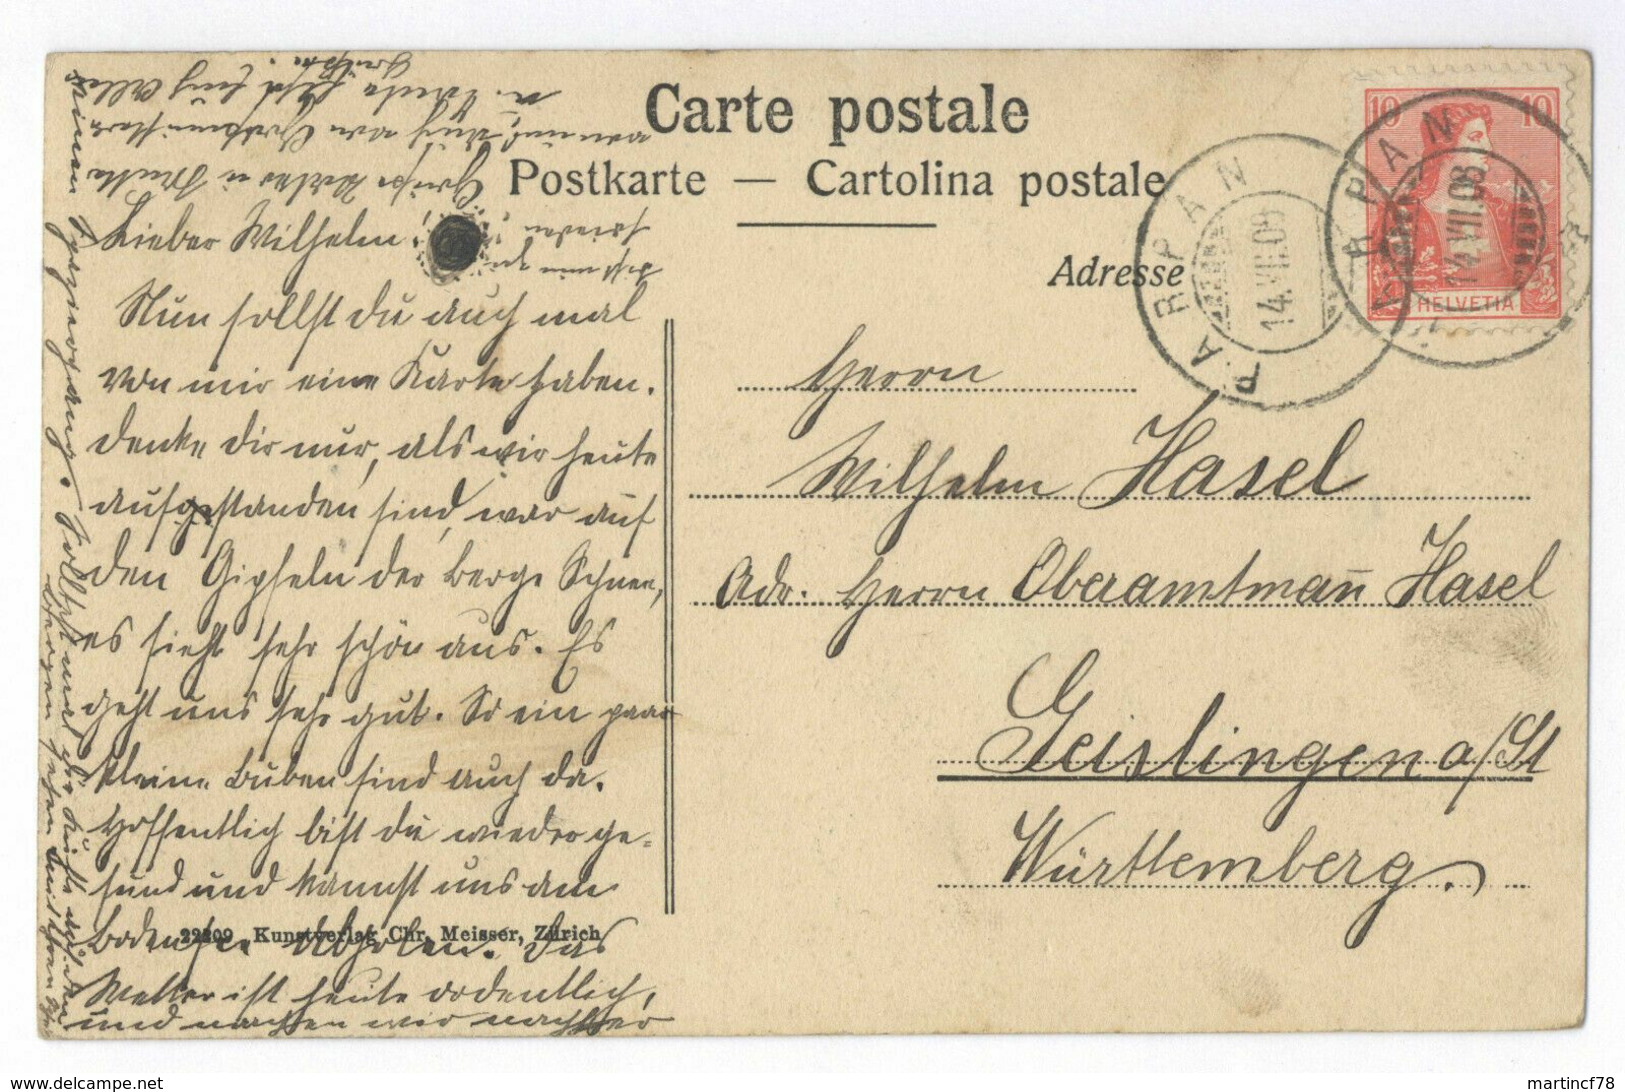 Carte postale
Postkarte — Cartolina postale
Adresse
10 10
HELVETIA
PARPAN
14.VII.08
PARPAN
14.VII.08
Herrn
Wilhelm Hasel
Adr. Herrn Oberamtmañ Hasel
Geislingen a/St
Württemberg.
Lieber Wilhelm!
Nun sollst du auch mal
von mir eine Karte haben.
Denke dir nur, als wir heute
aufgestanden sind, war auf
den Gipfeln der Berge Schnee,
es sieht sehr schön aus. Es
geht uns sehr gut. So ein paar
kleine Buben sind auch da.
Hoffentlich bist du wieder ge=
sund und kannst uns am
Bodensee abholen. Das
Wetter ist heute ordentlich,
und machen wir nachher
einen Spaziergang.
Grüße Vater u
22209 Kunstverlag Chr. Meisser, Zürich
martincf78
www.delcampe.net